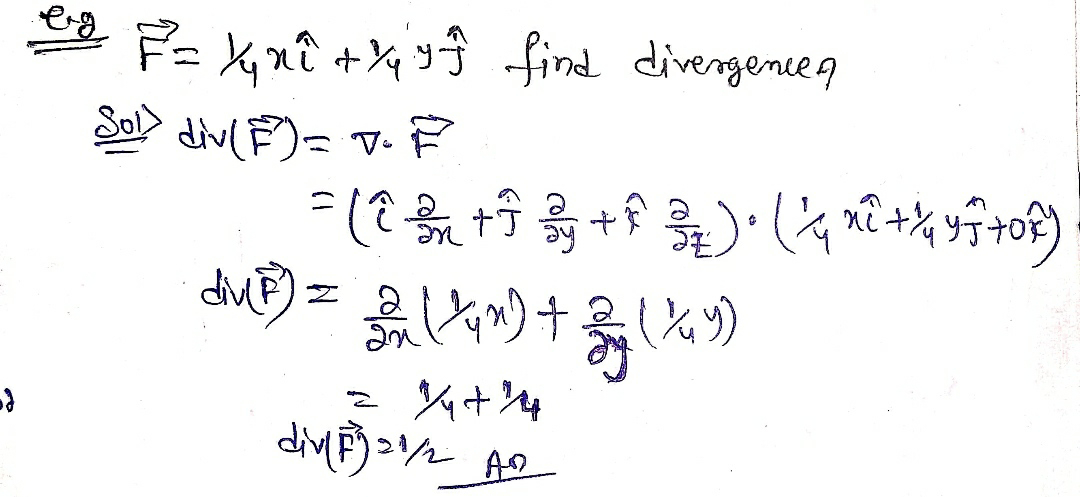 e.g
F⃗ = 1/4 x î + 1/4 y ĵ find divergence
Sol> div(F⃗) = ∇. F⃗
= (î ∂/∂x + ĵ ∂/∂y + k̂ ∂/∂z) . (1/4 x î + 1/4 y ĵ + 0k̂)
div(F⃗) = ∂/∂x (1/4 x) + ∂/∂y (1/4 y)
= 1/4 + 1/4
div(F⃗) = 1/2